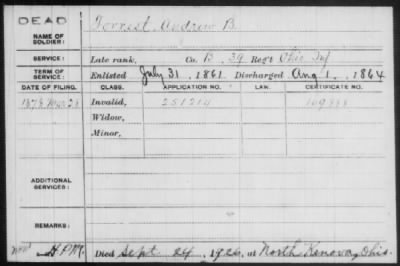 DEAD
NAME OF SOLDIER: Forrest, Andrew B.
SERVICE: Late rank, Co. B, 39 Reg't Ohio Inf
TERM OF SERVICE: Enlisted July 31, 1861. Discharged Aug 1, 1864
DATE OF FILING. CLASS. APPLICATION NO. LAW. CERTIFICATE NO.
1878 Mar 28 Invalid, 251214
Widow,
Minor,
ADDITIONAL SERVICES:
REMARKS:
Died Sept 24, 1926, at North Kenova, Ohio.